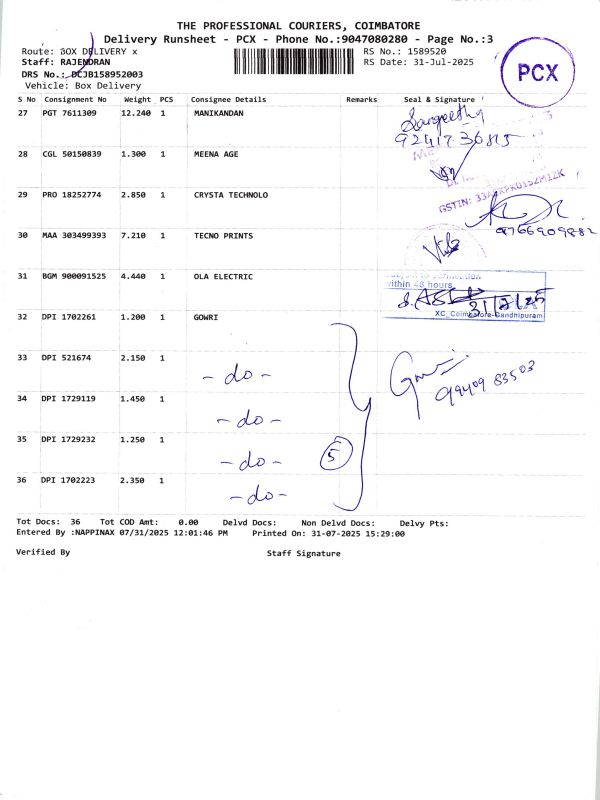 THE PROFESSIONAL COURIERS, COIMBATORE
Delivery Runsheet - PCX - Phone No.:9047080280 - Page No.:3
Route: BOX DELIVERY x RS No.: 1589520
Staff: RAJENDRAN RS Date: 31-Jul-2025
DRS No.: DCJB158952003
Vehicle: Box Delivery
PCX
S No Consignment No Weight PCS Consignee Details Remarks Seal & Signature
27 PGT 7611309 12.240 1 MANIKANDAN Sangeetha
28 CGL 50150839 1.300 1 MEENA AGE
29 PRO 18252774 2.850 1 CRYSTA TECHNOLO
GSTIN:
9766909882
30 MAA 303499393 7.210 1 TECNO PRINTS
31 BGM 900091525 4.440 1 OLA ELECTRIC
within 48 hours
31/7/25
XC_Coimbatore-Gandhipuram
32 DPI 1702261 1.200 1 GOWRI
33 DPI 521674 2.150 1
- do -
99409 83503
34 DPI 1729119 1.450 1
- do -
35 DPI 1729232 1.250 1
- do - 5
36 DPI 1702223 2.350 1
- do -
Tot Docs: 36 Tot COD Amt: 0.00 Delvd Docs: Non Delvd Docs: Delvy Pts:
Entered By :NAPPINAX 07/31/2025 12:01:46 PM Printed On: 31-07-2025 15:29:00
Verified By Staff Signature